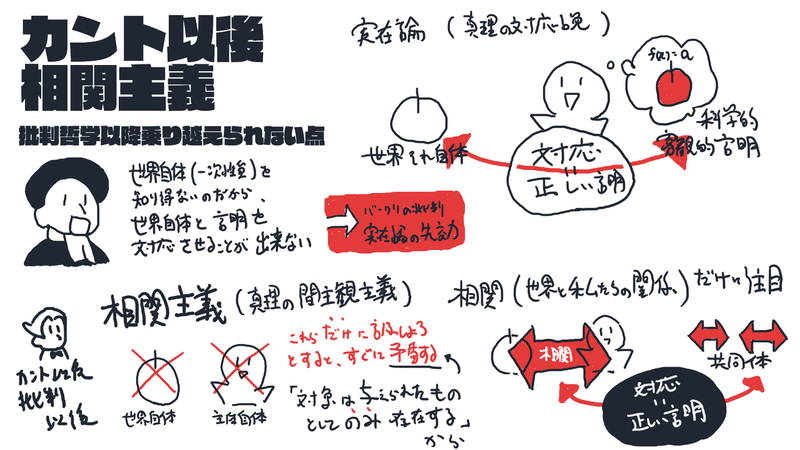 カント以後
相関主義
批判哲学以降乗り越えられない点
実在論 (真理の対応説)
f(x)=a
世界それ自体
科学的
客観的言明
対応
=
正しい言明
世界自体(一次性質)を
知り得ないのだから、
世界自体と言明を
対応させることが出来ない
バークリの批判
実在論の失効
相関主義(真理の間主観主義)
カント以後
批判
以後
世界自体
主体自体
これらだけに言及しよう
とすると、すぐに矛盾する
「対象は与えられたもの
としてのみ存在する」
から
相関(世界と私たちの関係)だけに注目
相関
共同体
対応
=
正しい言明